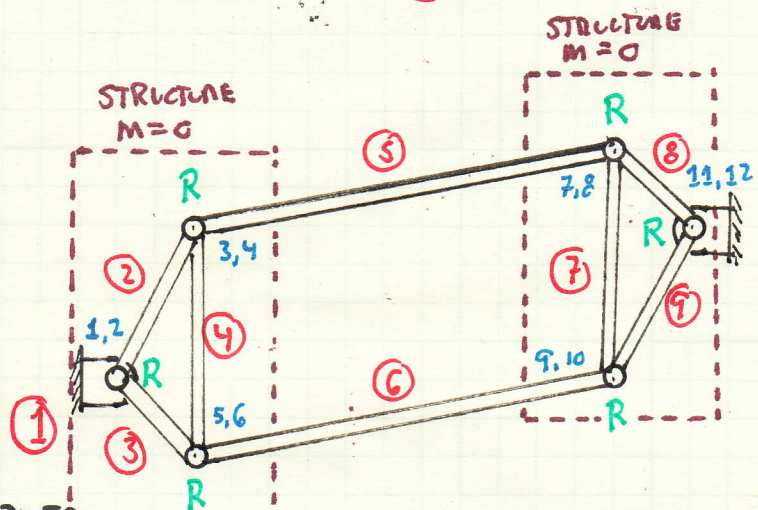 STRUCTURE
M=0
STRUCTURE
M=0
R
5
R
8
11,12
7,8
R
3,4
2
R
7
9
4
1,2
R
9,10
6
R
5,6
1
3
R